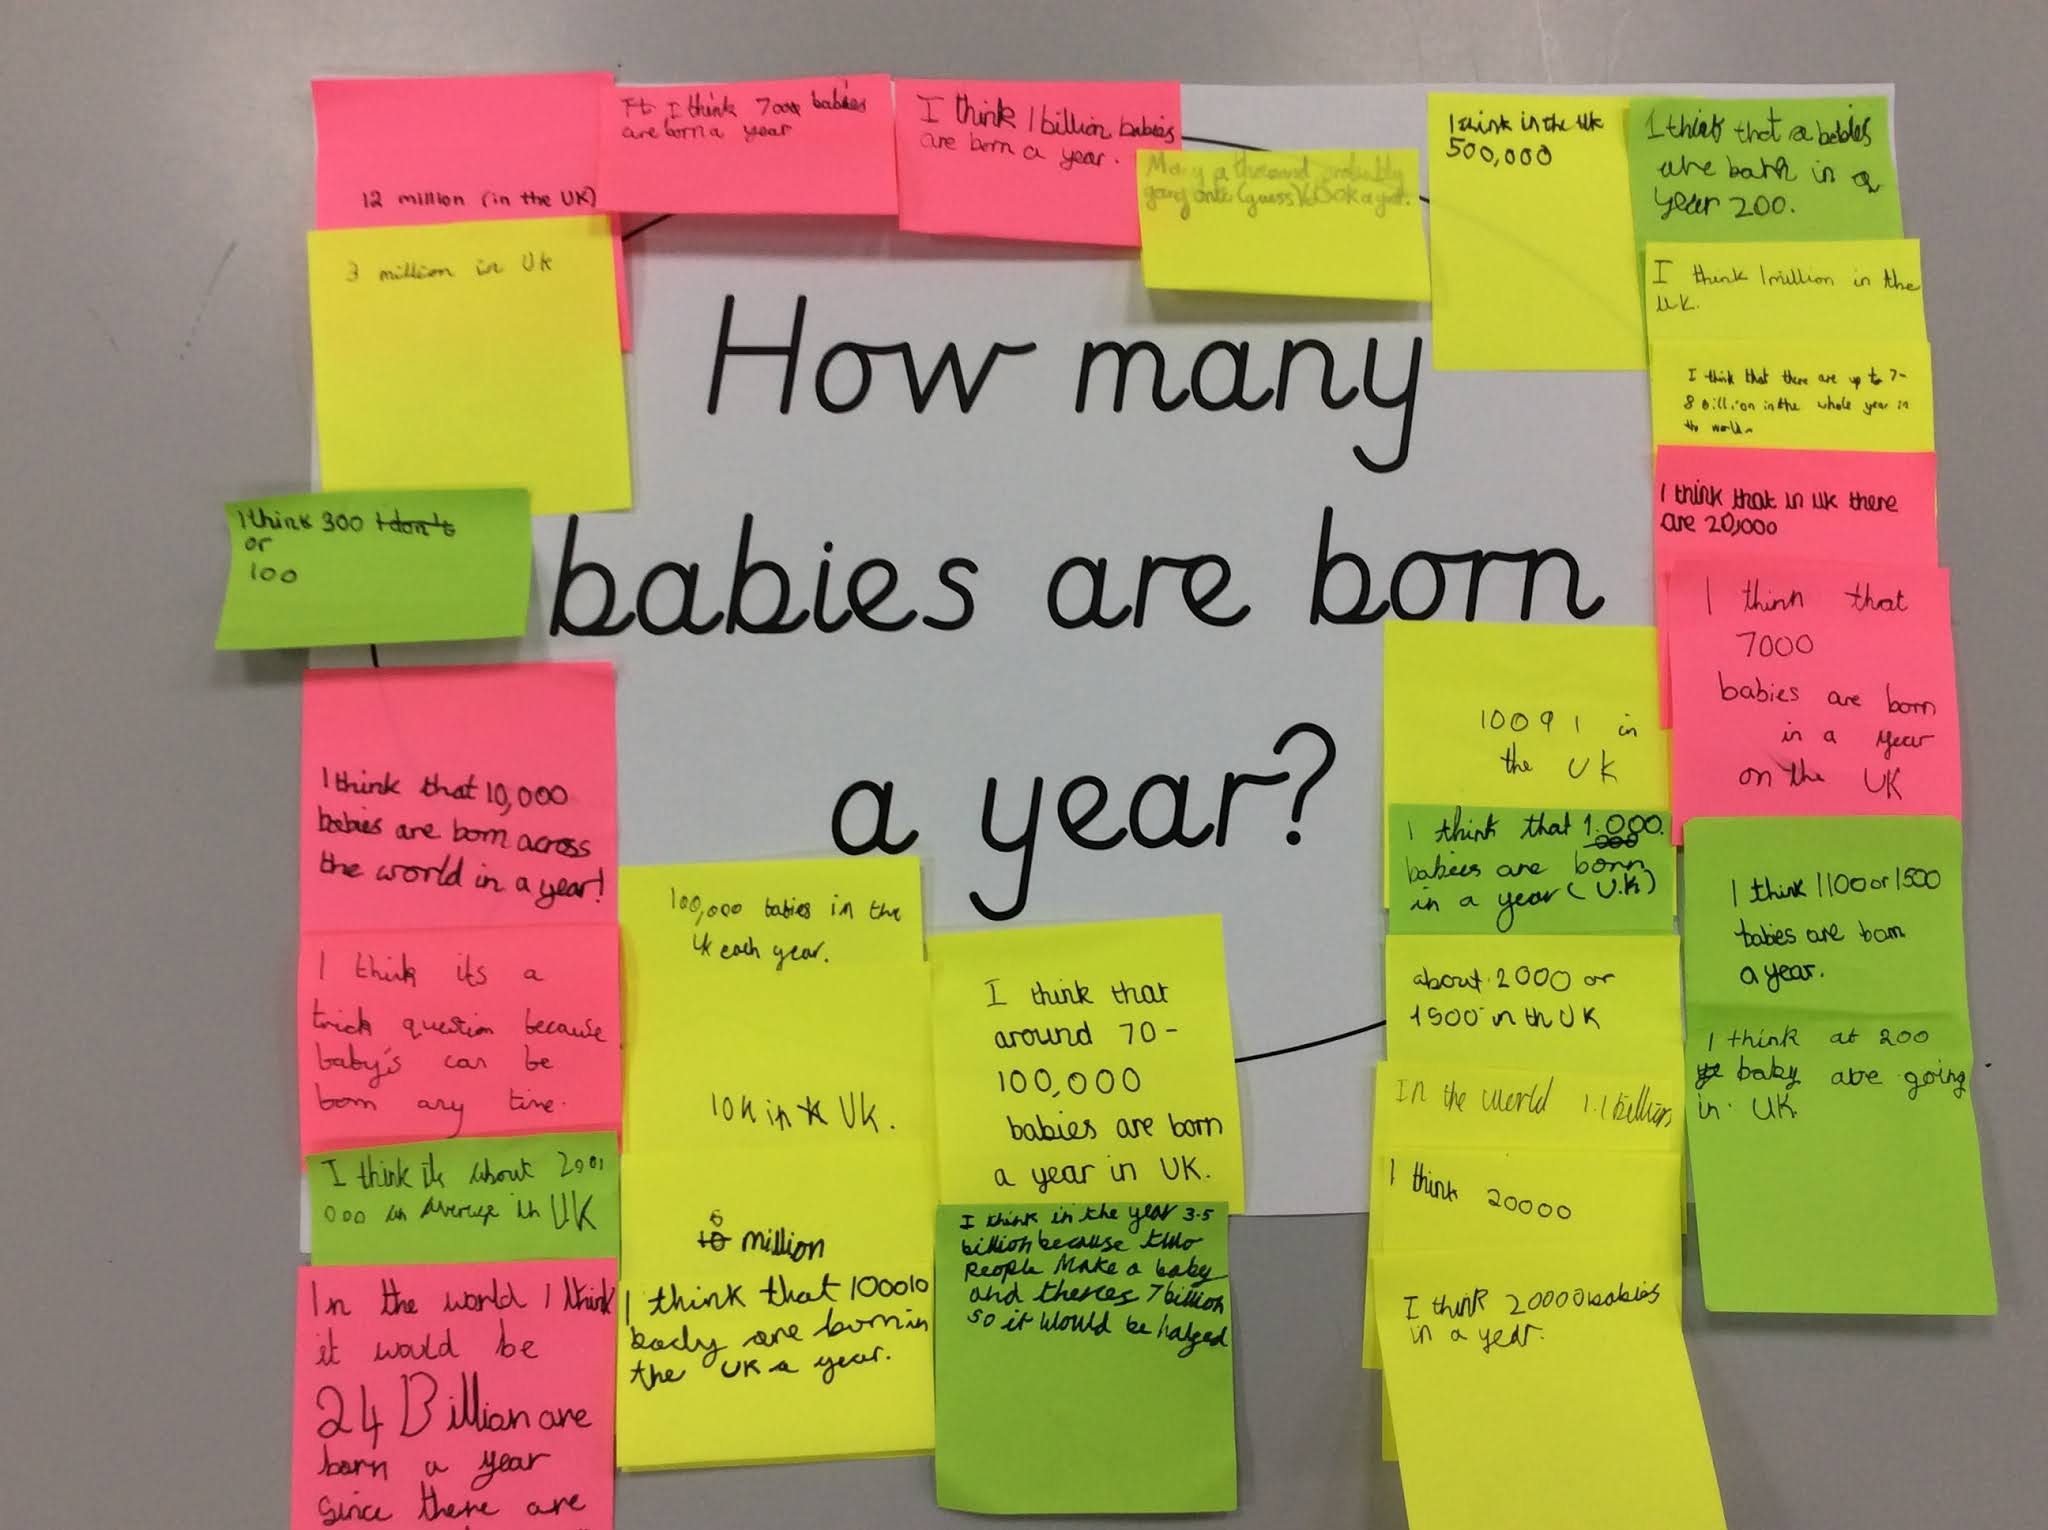 12 million (in the UK)
I think 7000 babies
are born a year
I think 1 billion babies
are born a year.
Many a thousand probably
going once (guess)
I think in the UK
500,000
I think that a babies
are in a
year 200.
3 million in UK
I think 1 million in the
UK.
I think that there are up to 7-
8 billion in the whole year in
the world.
How many
babies are born
a year?
I think 300 I don't
or
100
I think that in UK there
are 20,000
I think that
7000
babies are born
in a year
on the UK
I think that 10,000
babies are born across
the world in a year!
10091 in
the UK
I think that 1.000.
000
babies are born
in a year (U.K)
I think 1100 or 1500
babies are born
a year.
100,000 babies in the
UK each year.
I think its a
trick question because
baby's can be
born any time.
I think that
around 70-
100,000
babies are born
a year in UK.
about 2000 or
1500 in th UK
I think at 200
baby are going
in UK.
10K in UK.
In the world 1.1 billion
I think its about
000 in average in UK
5
10 million
I think 20000
I think in the year 3.5
billion because two
people make a baby
and theres 7 billion
so it would be halged
In the world I think
it would be
24 Billion are
born a year
since there are
I think that 100010
are born in
the UK a year.
I think 20000 babies
in a year.